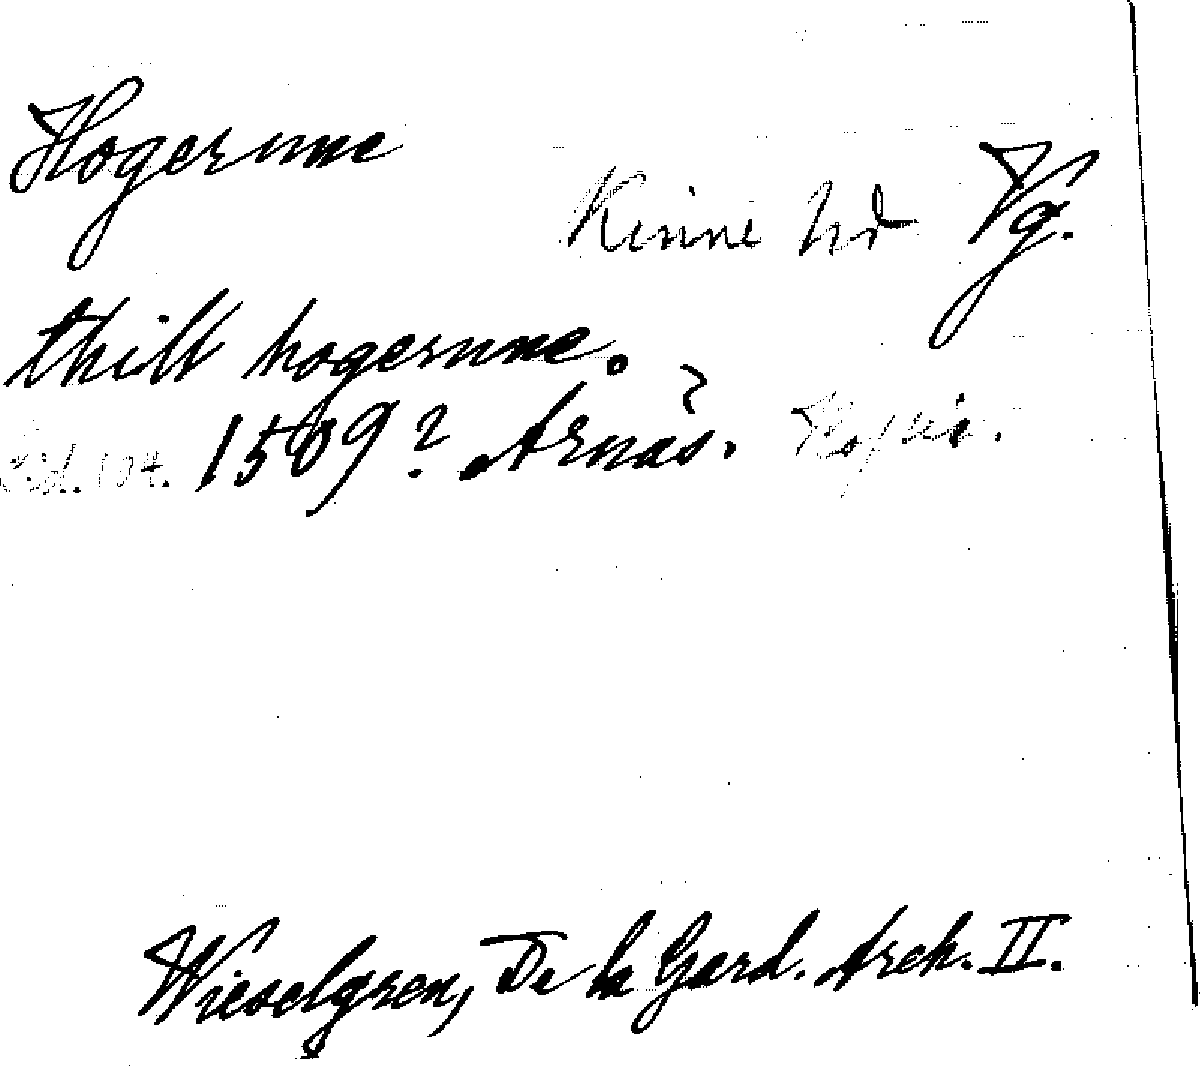 Hogerunne
Kinne hd Vg.
thill hogerunne.
Sid. 104. 1509? Arnäs. Kopia.
Wieselgren, De la Gard. Arch. II.